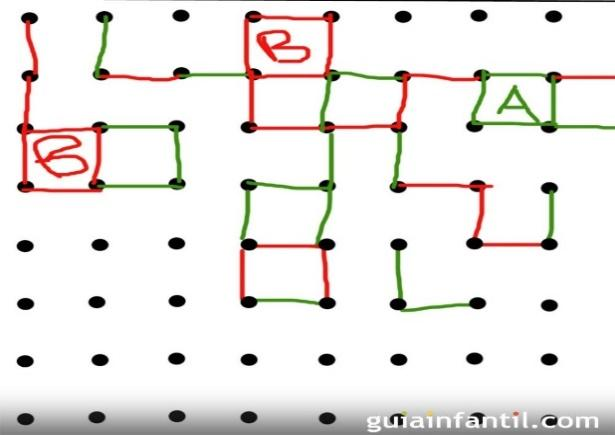 B
A
B
guiainfantil.com